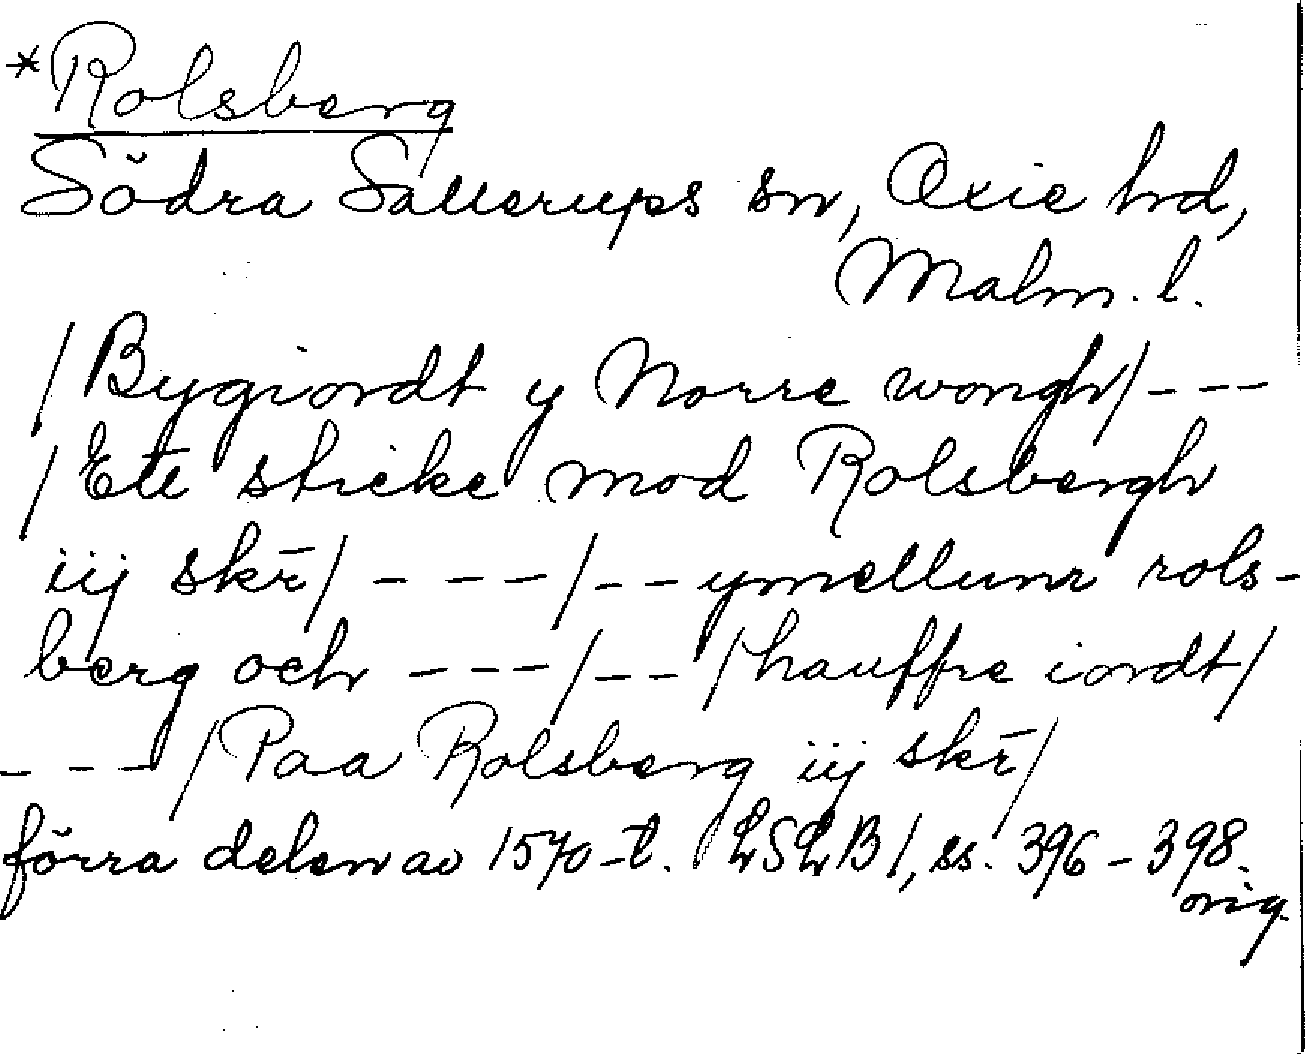 *Rolsberg
Södra Sallerups sn, Oxie hd,
Malm. l.
/Bygiordt y Norre wongh/---
/Ett sticke mod Rolsbergh
iij skr̄/----/--ymellum rols-
berg och ---/--/hauffre iordt/
---/Paa Rolsberg iij skr̄/
förra delen av 1570-t. LSLB 1, ss. 396-398.
orig.